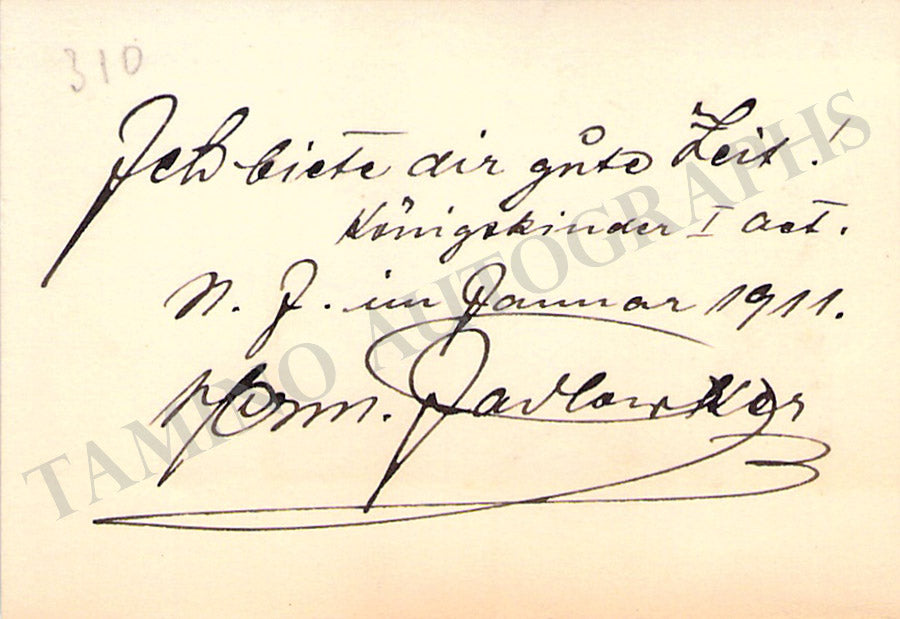 310
Ich biete dir gute Zeit!
Königskinder I Act.
N. J. im Januar 1911.
Herm. Jadlowker
TAMINO AUTOGRAPHS